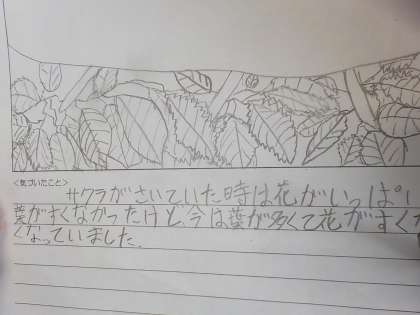 <気づいたこと>
サクラがさいていた時は花がいっぱい
葉がすくなかったけど、今は葉が多くて花がすくな
くなっていました。